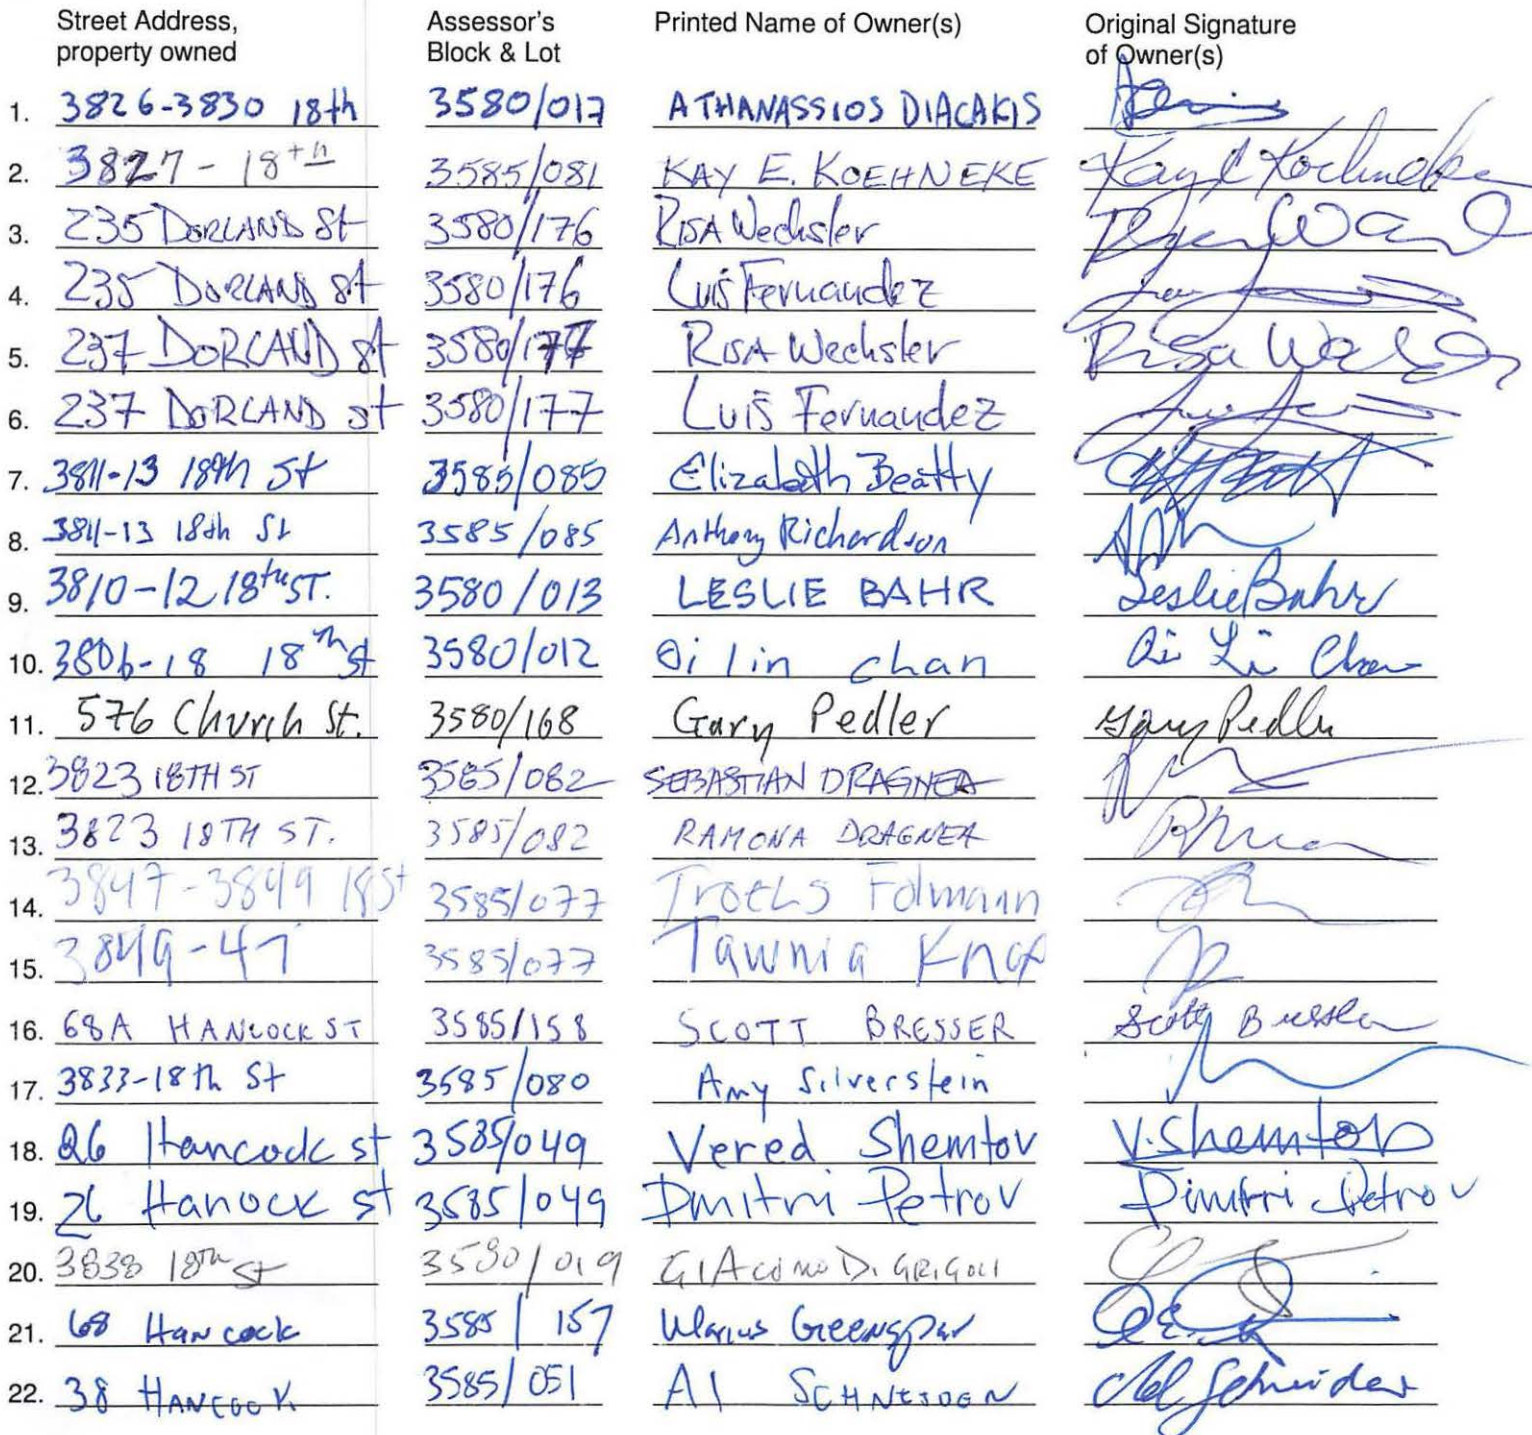 Street Address, property owned Assessor's Block & Lot Printed Name of Owner(s) Original Signature of Owner(s)
1. 3826-3830 18th 3580/017 ATHANASSIOS DIACAKIS
2. 3827 - 18th 3585/081 KAY E. KOEHNEKE Kay E Koehneke
3. 235 DORLAND St 3580/176 RISA Wechsler
4. 235 DORLAND St 3580/176 Luis Fernandez
5. 237 DORLAND St 3580/177 RISA Wechsler Risa
6. 237 DORLAND St 3580/177 Luis Fernandez
7. 3811-13 18th St 3585/085 Elizabeth Beatty
8. 3811-13 18th St 3585/085 Anthony Richardson
9. 3810-12 18th ST. 3580/013 LESLIE BAHR Leslie Bahr
10. 3806-18 18th St 3580/012 Qi lin chan Qi Li Chan
11. 576 Church St. 3580/168 Gary Pedler Gary Pedler
12. 3823 18TH ST 3585/082 SEBASTIAN DRAGNEA
13. 3823 18TH ST. 3585/082 RAMONA DRAGNEA
14. 3847-3849 18St 3585/077 Troels Folmann
15. 3849-47 3585/077 Tawnia Knox
16. 68A HANCOCK ST 3585/158 SCOTT BRESSER Scott Bresser
17. 3833-18th St 3585/080 Amy Silverstein
18. 26 Hancock st 3585/049 Vered Shemtov V. Shemtov
19. 26 Hanock st 3585/049 Dmitri Petrov Dmitri Petrov
20. 3838 18th St 3580/019 GIACOMO DI GRIGOLI
21. 68 Hancock 3585/157 Marius Greenspan
22. 38 HANCOCK 3585/051 Al Schneider